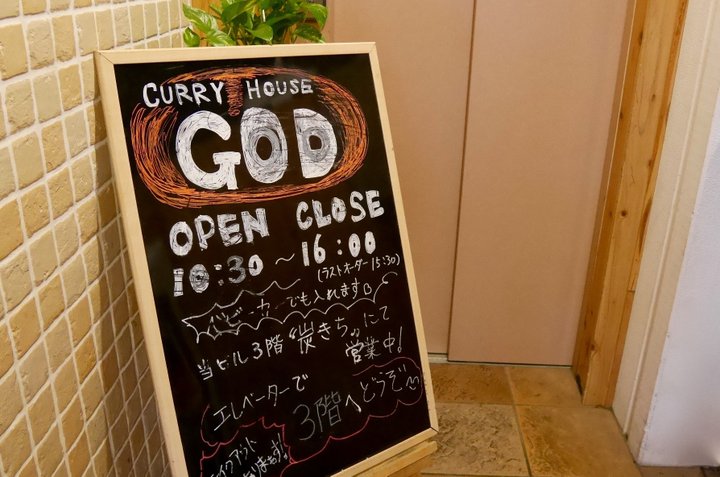 CURRY HOUSE
GOD
OPEN CLOSE
10:30 ～ 16:00
(ラストオーダー 15:30)
ベビーカーでも入れます
当ビル3階 "炭きち" にて
営業中!
エレベーターで
3階へどうぞ
テイクアウト
あります!